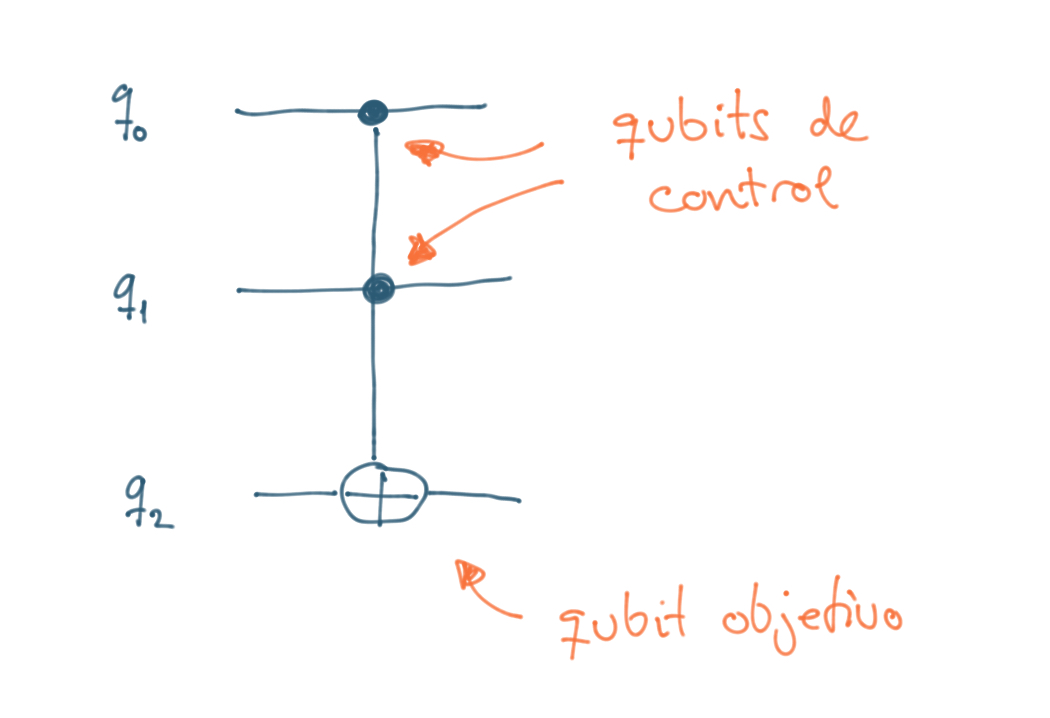 q₀
qubits de
control
q₁
q₂
qubit objetivo